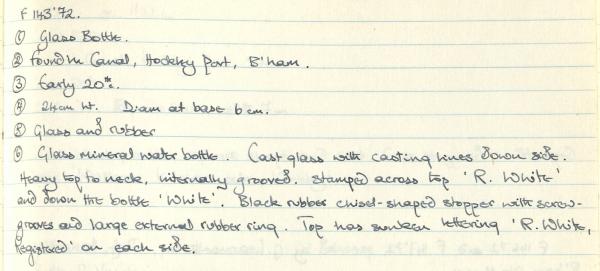 F 143'72.
① Glass Bottle.
② Found in Canal, Hockley Port, B'ham.
③ Early 20thc.
④ 24cm ht. Diam at base 6cm.
⑤ Glass and rubber
⑥ Glass mineral water bottle. Cast glass with casting lines down side.
Heavy top to neck, internally grooved. Stamped across top 'R. White'
and down the bottle 'White'. Black rubber chisel-shaped stopper with screw-
grooves and large external rubber ring. Top has sunken lettering 'R. White,
Registered' on each side.